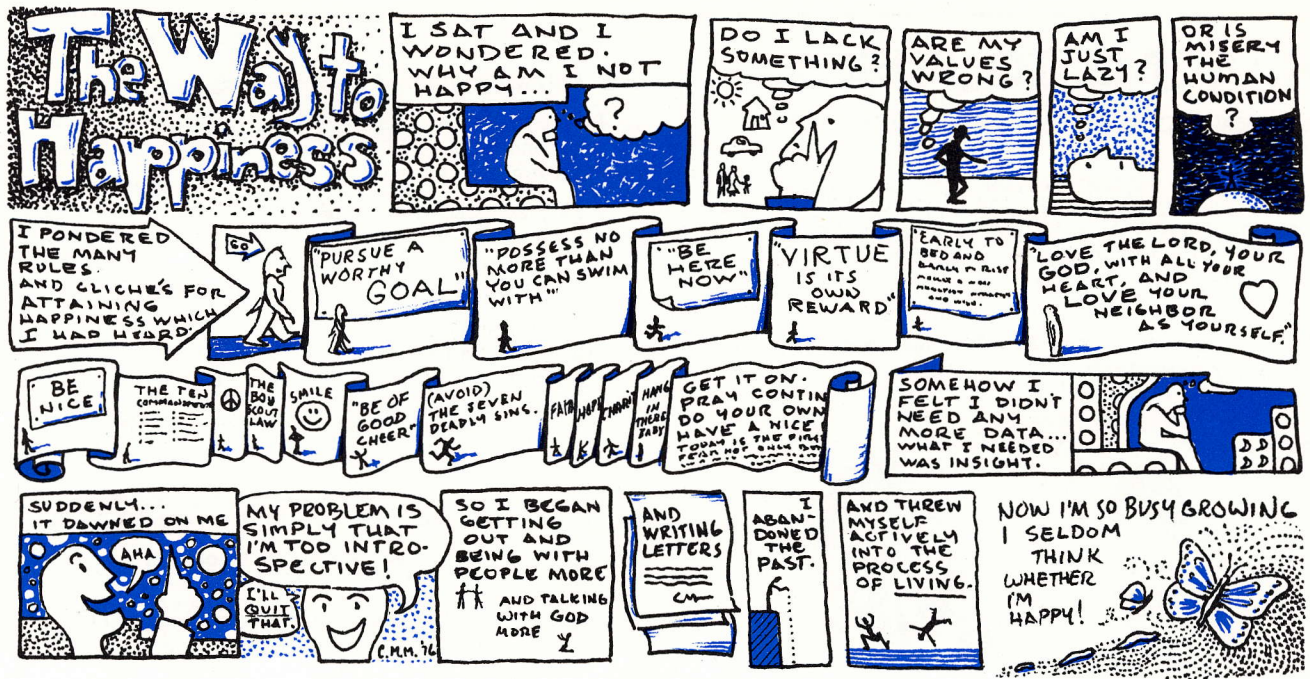 The Way to
Happiness
I SAT AND I
WONDERED.
WHY AM I NOT
HAPPY...
?
DO I LACK
SOMETHING?
ARE MY
VALUES
WRONG?
AM I
JUST
LAZY?
OR IS
MISERY
THE
HUMAN
CONDITION
?
I PONDERED
THE MANY
RULES.
AND CLICHE'S FOR
ATTAINING
HAPPINESS WHICH
I HAD HEARD.
GO
"PURSUE A
WORTHY
GOAL"
"POSSESS NO
MORE THAN
YOU CAN SWIM
WITH"
"BE
HERE
NOW"
"VIRTUE
IS ITS
OWN
REWARD"
"EARLY TO
BED AND
EARLY TO RISE
"LOVE THE LORD, YOUR
GOD, WITH ALL YOUR
HEART, AND
LOVE YOUR
NEIGHBOR
AS YOURSELF."
BE
NICE
THE TEN
COMMANDMENTS
THE
BOY
SCOUT
LAW
SMILE
"BE OF
GOOD
CHEER"
(AVOID)
THE SEVEN
DEADLY SINS.
FAITH
HOPE
CHARITY
HANG
IN
THERE
BABY
GET IT ON.
PRAY CONTIN
DO YOUR OWN
HAVE A NICE
TODAY IS THE FIRST
NOT ONLY
SOMEHOW I
FELT I DIDN'T
NEED ANY
MORE DATA...
WHAT I NEEDED
WAS INSIGHT.
SUDDENLY...
IT DAWNED ON ME
AHA
MY PROBLEM IS
SIMPLY THAT
I'M TOO INTRO-
SPECTIVE!
I'LL
QUIT
THAT.
C.M.M. '76
SO I BEGAN
GETTING
OUT AND
BEING WITH
PEOPLE MORE
AND TALKING
WITH GOD
MORE
AND
WRITING
LETTERS
CM
I
ABAN-
DONED
THE
PAST.
AND THREW
MYSELF
ACTIVELY
INTO THE
PROCESS
OF LIVING.
NOW I'M SO BUSY GROWING
I SELDOM
THINK
WHETHER
I'M
HAPPY!